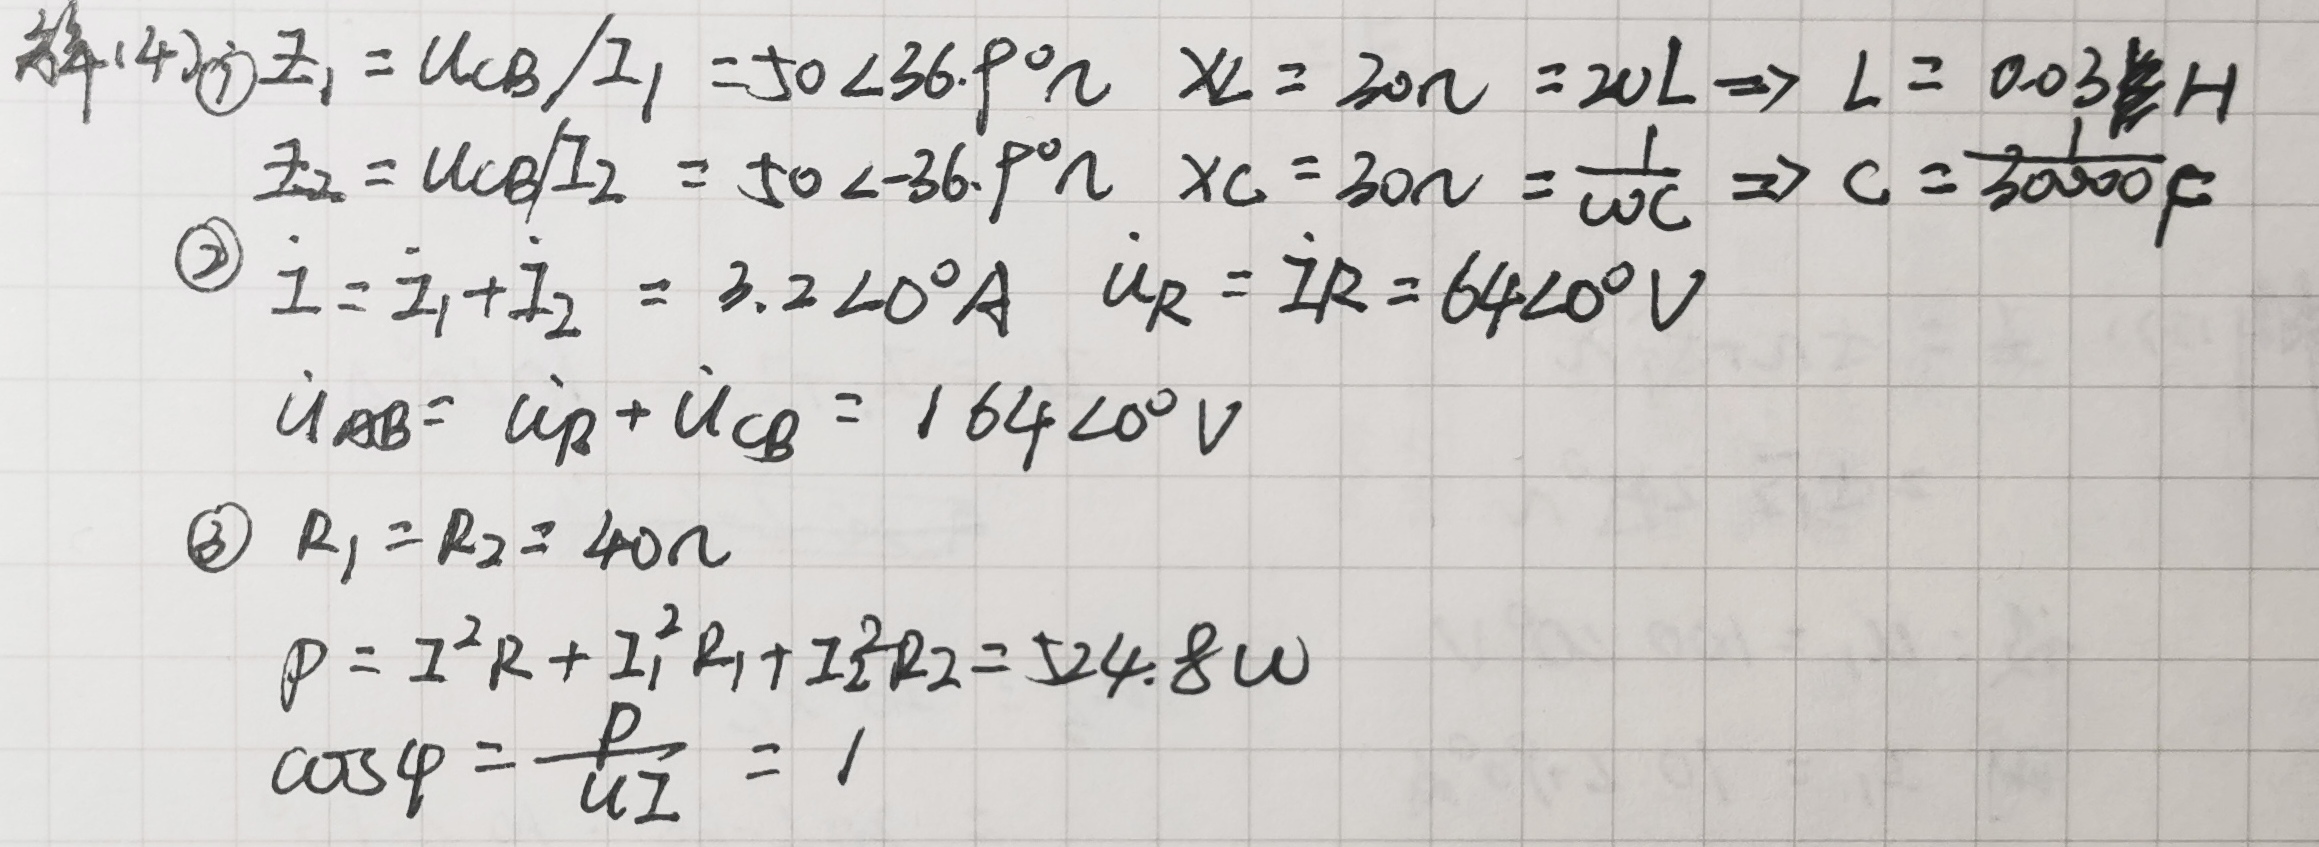 解(4)① Z₁ = UCB/I₁ = 50∠36.9°Ω XL = 30Ω = ωL ⇒ L = 0.03H
Z₂ = UCB/I₂ = 50∠-36.9°Ω XC = 30Ω = 1/ωC ⇒ C = 1/30000 F
② İ = İ₁ + İ₂ = 3.2∠0°A U̇R = İR = 64∠0°V
U̇AB = U̇R + U̇CB = 164∠0°V
③ R₁ = R₂ = 40Ω
P = I²R + I₁²R₁ + I₂²R₂ = 524.8W
cosφ = P/UI = 1